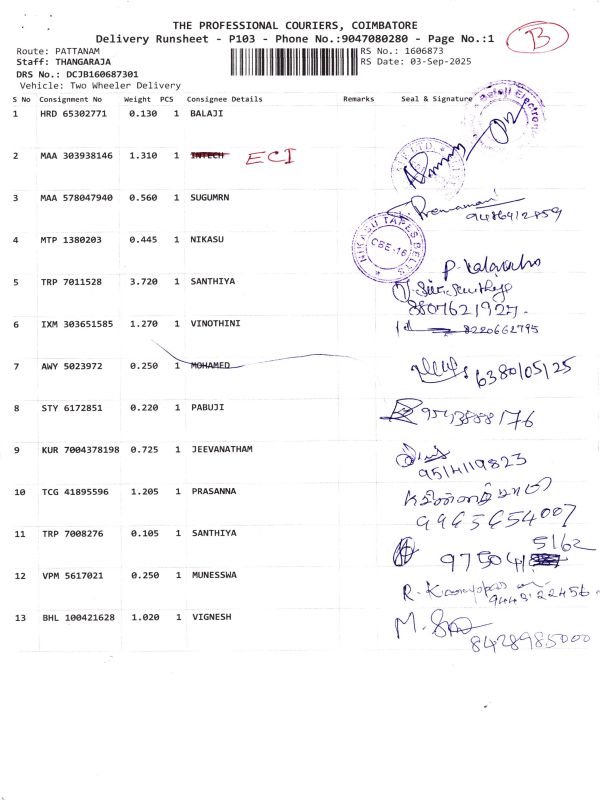 THE PROFESSIONAL COURIERS, COIMBATORE
Delivery Runsheet - P103 - Phone No.:9047080280 - Page No.:1
B
Route: PATTANAM
RS No.: 1606873
Staff: THANGARAJA
RS Date: 03-Sep-2025
DRS No.: DCJB160687301
Vehicle: Two Wheeler Delivery
S No Consignment No Weight PCS Consignee Details Remarks Seal & Signature
1 HRD 65302771 0.130 1 BALAJI
Balaji Electronic
2 MAA 303938146 1.310 1 INTECH ECI
3 MAA 578047940 0.560 1 SUGUMRN
9486912459
4 MTP 1380203 0.445 1 NIKASU
NIKASU TAPES BELTS
CBE-16
5 TRP 7011528 3.720 1 SANTHIYA
3807621927
6 IXM 303651585 1.270 1 VINOTHINI
8220662795
7 AWY 5023972 0.250 1 MOHAMED
6380105125
8 STY 6172851 0.220 1 PABUJI
9543888176
9 KUR 7004378198 0.725 1 JEEVANATHAM
9514119823
10 TCG 41895596 1.205 1 PRASANNA
9965654007
11 TRP 7008276 0.105 1 SANTHIYA
5162
975041
12 VPM 5617021 0.250 1 MUNESSWA
9443122456
13 BHL 100421628 1.020 1 VIGNESH
8428985000